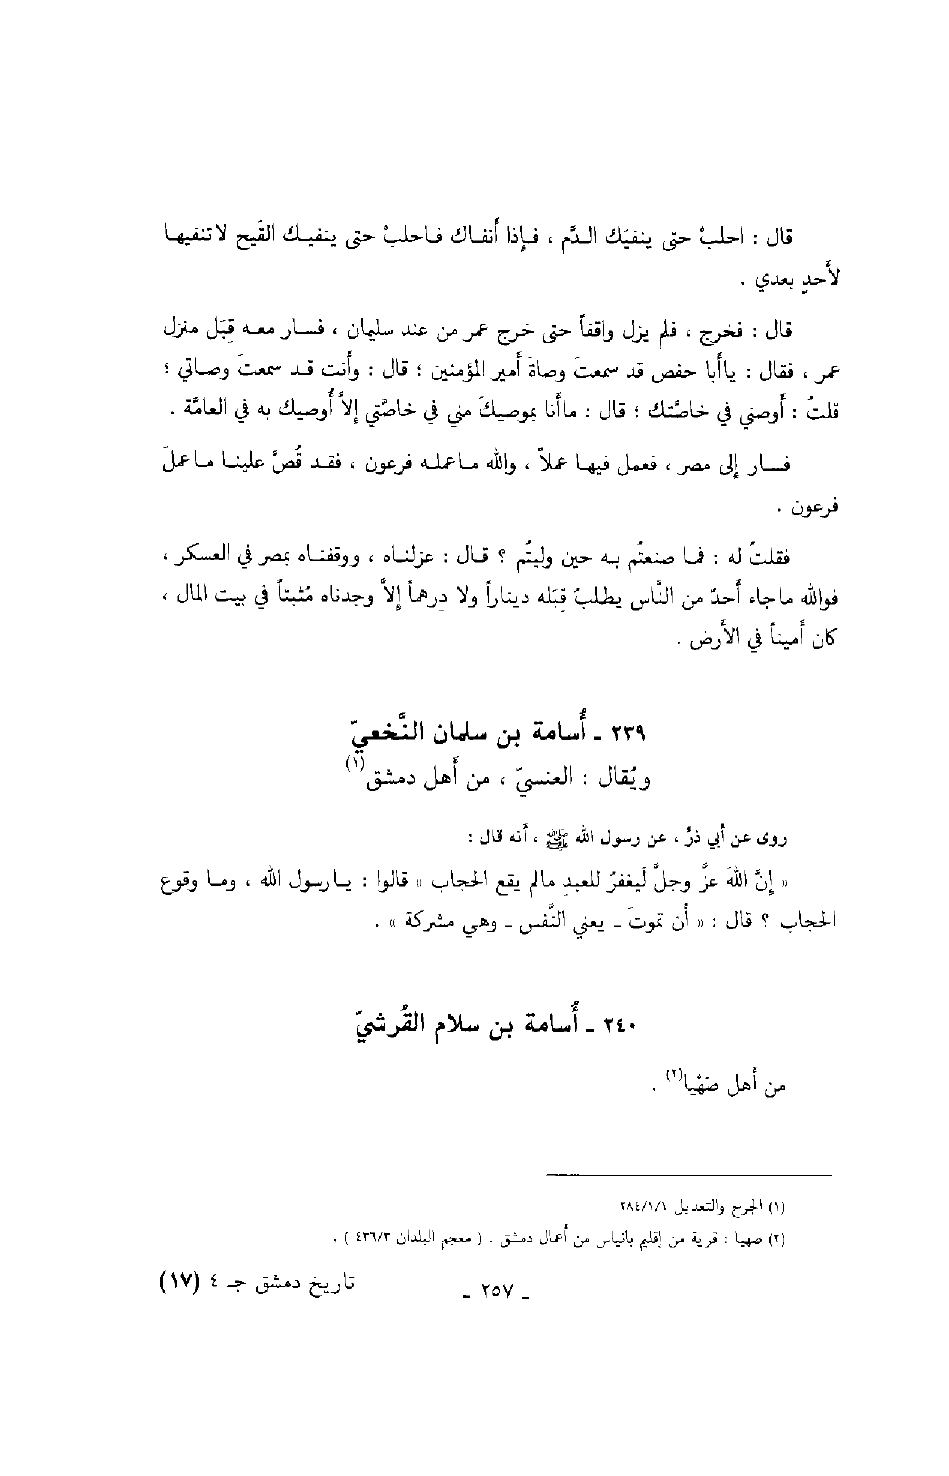 قال : احلبْ حتى ينفيَك الدَّم ، فإذا أنفاك فاحلبْ حتى ينفيك القَيح لا تنفيها
لأحدٍ بعدي .
قال : فخرج ، فلم يزل واقفاً حتى خرج عمر من عند سليمان ، فسار معه قِبَل منزل
عمر ، فقال : ياأبا حفص قد سمعتَ وصاة أمير المؤمنين ؛ قال : وأنت قد سمعتَ وصاتي ؛
قلتُ : أوصني في خاصَّتك ؛ قال : ماأنا بموصيكَ مني في خاصَّتي إلاَّ أُوصيك به في العامَّة .
فسار إلى مصر ، فعمل فيها عملاً ، والله ماعمله فرعون ، فقد قُصَّ علينا ماعملَ
فرعون .
فقلتُ له : فما صنعتُم به حين وليتُم ؟ قال : عزلناه ، ووقفناه بمصر في العسكر ،
فوالله ماجاء أحدٌ من النَّاس يطلبُ قِبَله ديناراً ولا درهماً إلاَّ وجدناه مُثبتاً في بيت المال ،
كان أميناً في الأرض .
٢٣٩ ـ أُسامة بن سلمان النَّخعيّ
ويُقال : العنسيّ ، من أهل دمشق(١)
روى عن أبي ذرٍّ ، عن رسول الله ﷺ ، أنه قال :
« إنَّ اللهَ عزَّ وجلَّ لَيغفرُ للعبدِ مالم يقع الحجاب » قالوا : يارسول الله ، وما وقوع
الحجاب ؟ قال : « أن تموتَ ـ يعني النَّفس ـ وهي مشركة » .
٢٤٠ ـ أُسامة بن سلام القُرشيّ
من أهل صَهْيا(٢) .
(١) الجرح والتعديل ٢٨٤/١/١
(٢) صهيا : قرية من إقليم بانياس من أعمال دمشق . ( معجم البلدان ٤٣٦/٣ ) .
ـ ٢٥٧ ـ
تاريخ دمشق جـ ٤ (١٧)